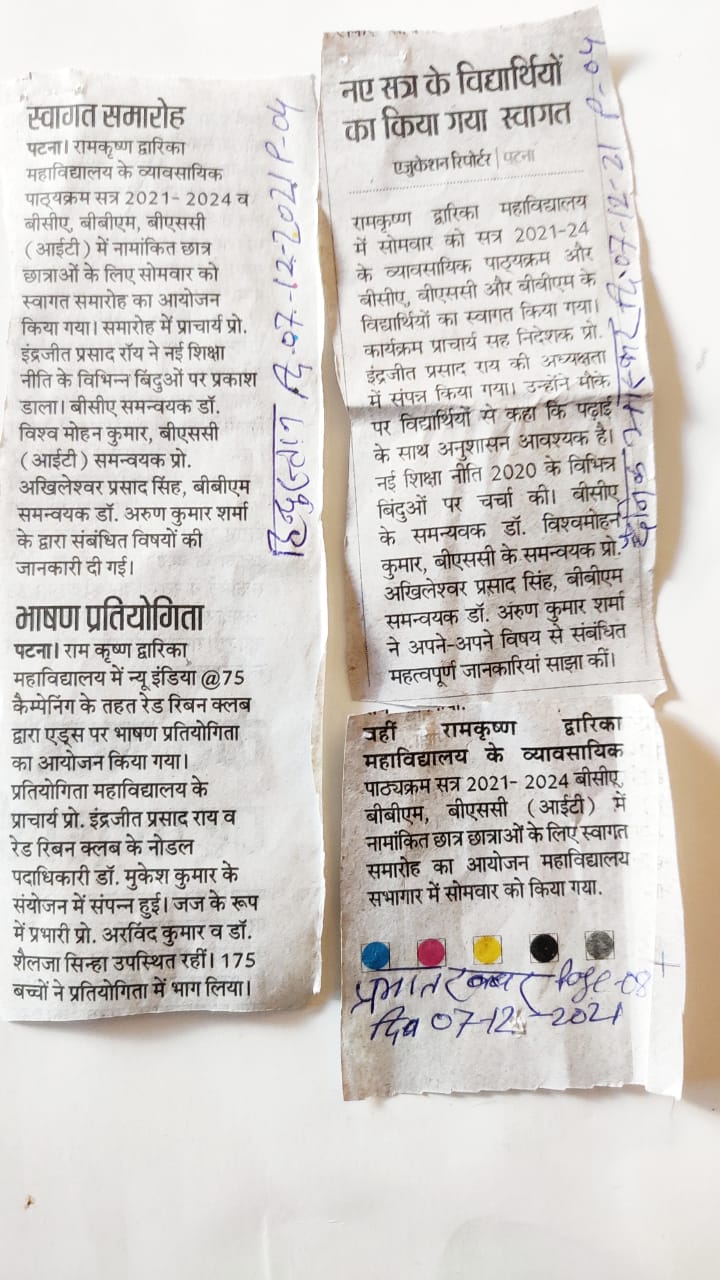 स्वागत समारोह
पटना। रामकृष्ण द्वारिका
महाविद्यालय के व्यावसायिक
पाठ्यक्रम सत्र 2021- 2024 व
बीसीए, बीबीएम, बीएससी
(आईटी) में नामांकित छात्र
छात्राओं के लिए सोमवार को
स्वागत समारोह का आयोजन
किया गया। समारोह में प्राचार्य प्रो.
इंद्रजीत प्रसाद रॉय ने नई शिक्षा
नीति के विभिन्न बिंदुओं पर प्रकाश
डाला। बीसीए समन्वयक डॉ.
विश्व मोहन कुमार, बीएससी
(आईटी) समन्वयक प्रो.
अखिलेश्वर प्रसाद सिंह, बीबीएम
समन्वयक डॉ. अरुण कुमार शर्मा
के द्वारा संबंधित विषयों की
जानकारी दी गई।
भाषण प्रतियोगिता
पटना। राम कृष्ण द्वारिका
महाविद्यालय में न्यू इंडिया @75
कैम्पेनिंग के तहत रेड रिबन क्लब
द्वारा एड्स पर भाषण प्रतियोगिता
का आयोजन किया गया।
प्रतियोगिता महाविद्यालय के
प्राचार्य प्रो. इंद्रजीत प्रसाद राय व
रेड रिबन क्लब के नोडल
पदाधिकारी डॉ. मुकेश कुमार के
संयोजन में संपन्न हुई। जज के रूप
में प्रभारी प्रो. अरविंद कुमार व डॉ.
शैलजा सिन्हा उपस्थित रहीं। 175
बच्चों ने प्रतियोगिता में भाग लिया।
हिन्दुस्तान दि 07-12-2021 P-04
नए सत्र के विद्यार्थियों
का किया गया स्वागत
एजुकेशन रिपोर्टर | पटना
रामकृष्ण द्वारिका महाविद्यालय
में सोमवार को सत्र 2021-24
के व्यावसायिक पाठ्यक्रम और
बीसीए, बीएससी और बीबीएम के
विद्यार्थियों का स्वागत किया गया।
कार्यक्रम प्राचार्य सह निदेशक प्रो.
इंद्रजीत प्रसाद राय की अध्यक्षता
में संपन्न किया गया। उन्होंने मौके
पर विद्यार्थियों से कहा कि पढ़ाई
के साथ अनुशासन आवश्यक है।
नई शिक्षा नीति 2020 के विभिन्न
बिंदुओं पर चर्चा की। बीसीए
के समन्यवक डॉ. विश्वमोहन
कुमार, बीएससी के समन्वयक प्रो.
अखिलेश्वर प्रसाद सिंह, बीबीएम
समन्वयक डॉ. अरुण कुमार शर्मा
ने अपने-अपने विषय से संबंधित
महत्वपूर्ण जानकारियां साझा कीं।
दैनिक भास्कर दि 07-12-21 P-04
वहीं रामकृष्ण द्वारिका
महाविद्यालय के व्यावसायिक
पाठ्यक्रम सत्र 2021- 2024 बीसीए,
बीबीएम, बीएससी (आईटी) में
नामांकित छात्र छात्राओं के लिए स्वागत
समारोह का आयोजन महाविद्यालय
सभागार में सोमवार को किया गया.
प्रभात खबर Page-08
दि 07-12-2021